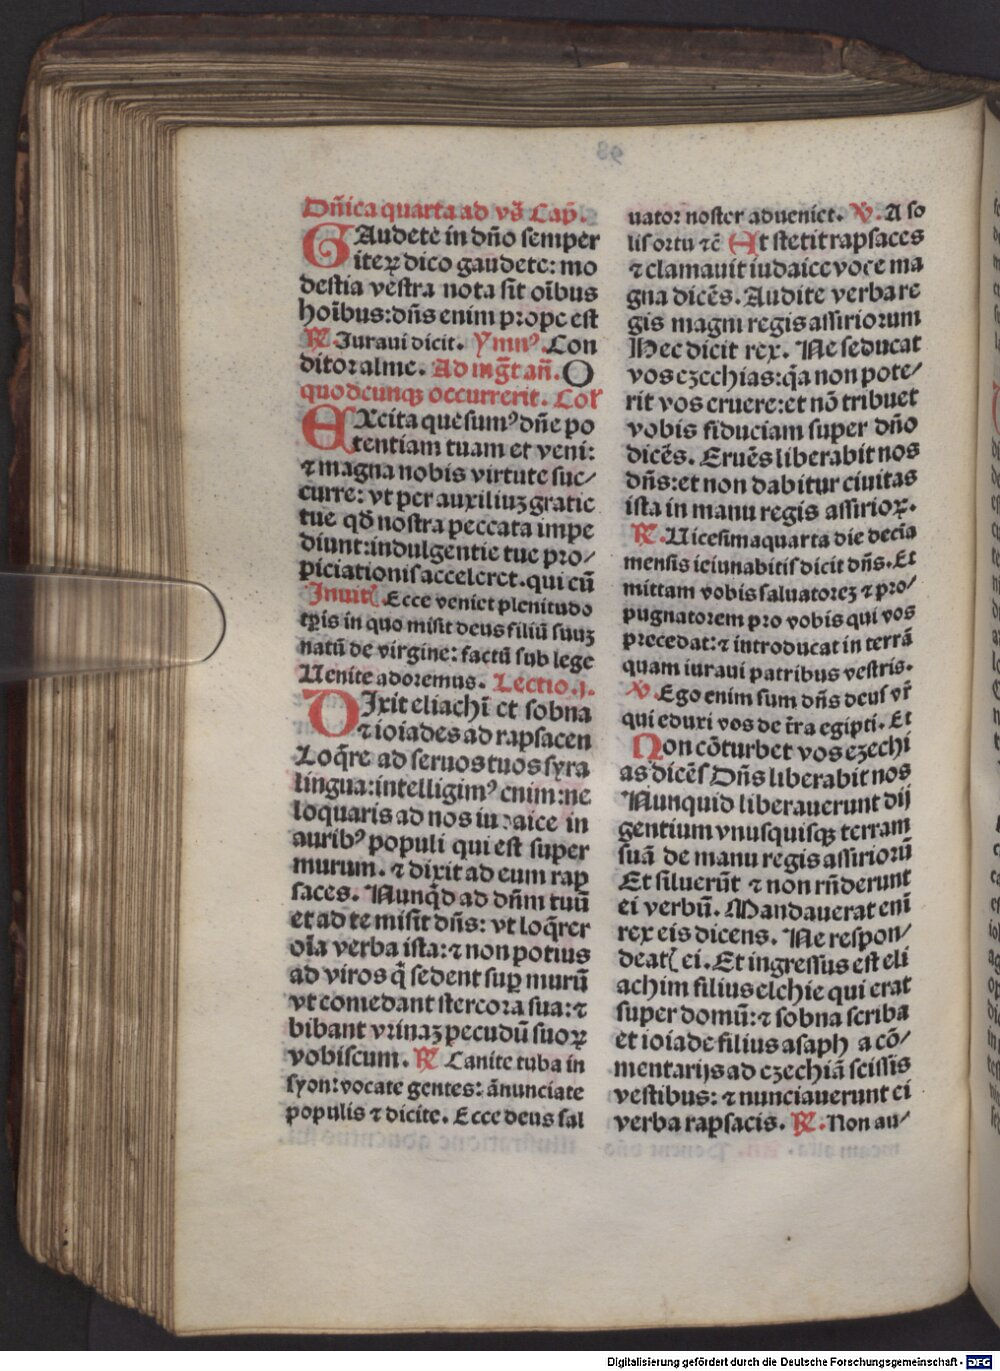 Dñica quarta ad vs̃ Cap̃.
GAudete in dño semper
iteꝝ dico gaudete: mo
destia vestra nota sit oĩbus
hoĩbus: dñs enim prope est
℟ Juraui dicit. Ymnꝰ. Con
ditor alme. Ad mg̃t añ. O
quodcunqꝫ occurrerit. Col̃
EXcita quesumꝰ dñe po
tentiam tuam et veni:
⁊ magna nobis virtute suc⸗
curre: vt per auxiliuꝫ gratie
tue qđ nostra peccata impe
diunt: indulgentie tue pro⸗
piciationis acceleret. qui cũ
Inuit̃. Ecce veniet plenitudo
tp̃is in quo misit deus filiũ suuꝫ
natũ de virgine: factũ sub lege
Uenite adoremus. Lectio .j.
DIxit eliachĩ et sobna
⁊ ioiades ad rapsacen
Loq̃re ad seruos tuos syra
lingua: intelligimꝰ enim: ne
loquaris ad nos iudaice in
auribꝰ populi qui est super
murum. ⁊ dixit ad eum rap
saces. Nunq̃d ad dñm tuũ
et ad te misit dñs: vt loq̃rer
oĩa verba ista: ⁊ non potius
ad viros q̃ sedent suꝑ murũ
vt comedant stercora sua: ⁊
bibant vrinaꝫ pecudũ suoꝝ
vobiscum. ℟ Canite tuba in
syon: vocate gentes: ãnunciate
populis ⁊ dicite. Ecce deus sal
uator noster adueniet. ℣. A so
lis ortu ⁊c̃ At stetit rapsaces
⁊ clamauit iudaice voce ma
gna dicẽs. Audite verba re
gis magni regis assiriorum
Hec dicit rex. Ne seducat
vos ezechias: q̃a non pote⸗
rit vos eruere: et nõ tribuet
vobis fiduciam super dño
dicẽs. Eruẽs liberabit nos
dñs: et non dabitur ciuitas
ista in manu regis assirioꝝ.
℟. Uicesima quarta die decĩa
mensis ieiunabitis dicit dñs. Et
mittam vobis saluatoreꝫ ⁊ pro⸗
pugnatorem pro vobis qui vos
precedat: ⁊ introducat in terrã
quam iuraui patribus vestris.
℣. Ego enim sum dñs deus vr̃
qui eduxi vos de t̃ra egipti. Et
Non cõturbet vos ezechi
as dicẽs Dñs liberabit nos
Nunquid liberauerunt dij
gentium vnusquisqꝫ terram
suã de manu regis assiriorũ
Et siluerũt ⁊ non rñderunt
ei verbũ. Mandauerat enĩ
rex eis dicens. Ne respon⸗
deat̃ ei. Et ingressus est eli
achim filius elchie qui erat
super domũ: ⁊ sobna scriba
et ioiade filius asaph a cõ⸗
mentarijs ad ezechiã scissis
vestibus: ⁊ nunciauerunt ei
verba rapsacis. ℟. Non au⸗
Digitalisierung gefördert durch die Deutsche Forschungsgemeinschaft - DFG